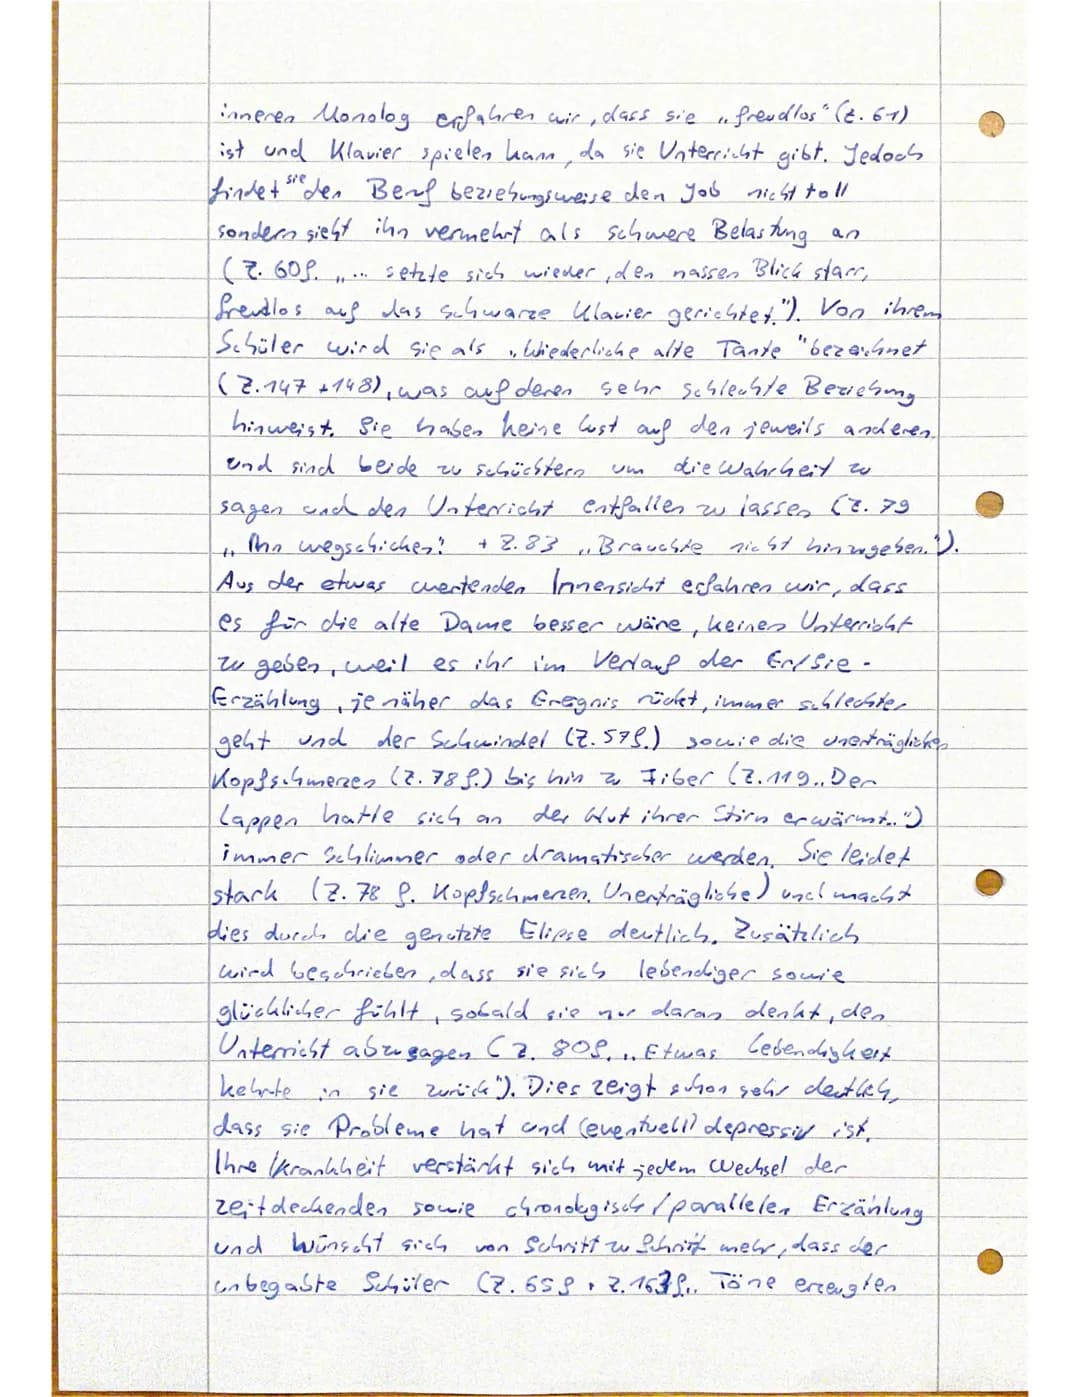 inneren Monolog erfahren wir, dass sie „freudlos" (Z. 61)
ist und Klavier spielen kann, da sie Unterricht gibt. Jedoch
findet sie den Beruf beziehungsweise den Job nicht toll
sondern sieht ihn vermehrt als schwere Belastung an
(Z. 60f. „... setzte sich wieder, den nassen Blick starr,
freudlos auf das schwarze Klavier gerichtet."). Von ihrem
Schüler wird sie als „Wiederliche alte Tante" bezeichnet
(Z. 147 + 148), was auf deren sehr schlechte Beziehung
hinweist. Sie haben keine Lust auf den jeweils anderen
und sind beide zu schüchtern um die Wahrheit zu
sagen und den Unterricht entfallen zu lassen (Z. 79
„Ihn wegschicken! + Z. 83 „Brauchte nicht hinzugeben.").
Aus der etwas wertenden Innensicht erfahren wir, dass
es für die alte Dame besser wäre, keinen Unterricht
zu geben, weil es ihr im Verlauf der Er/Sie-
Erzählung, je näher das Eregnis rückt, immer schlechter
geht und der Schwindel (Z. 57f.) sowie die unerträglichen
Kopfschmerzen (Z. 78f.) bis hin zu Fiber (Z. 119 „Der
Lappen hatte sich an der Glut ihrer Stirn erwärmt..")
immer Schlimmer oder dramatischer werden. Sie leidet
stark (Z. 78 f. Kopfschmerzen. Unerträgliche) und macht
dies durch die genutzte Elipse deutlich. Zusätzlich
wird beschrieben, dass sie sich lebendiger sowie
glücklicher fühlt, sobald sie nur daran denkt, den
Unterricht abzusagen (Z. 80f. „Etwas Lebendigkeit
kehrte in sie zurück"). Dies zeigt schon sehr deutlich,
dass sie Probleme hat und (eventuell) depressiv ist.
Ihre Krankheit verstärkt sich mit jedem Wechsel der
zeitdeckenden sowie chronologisch/parallelen Erzählung
und Wünscht sich von Schritt zu Schritt mehr, dass der
unbegabte Schüler (Z. 65f + Z. 163f. „ Töne erzeugten